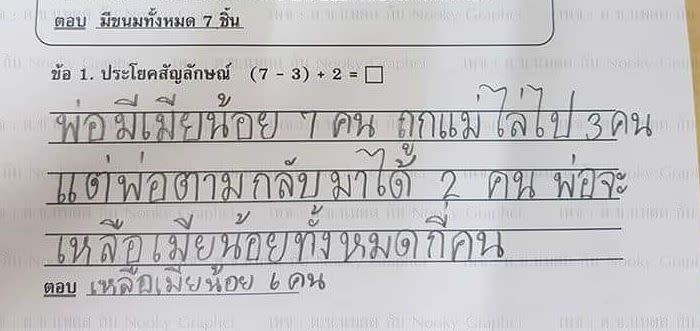 ตอบ มีขนมทั้งหมด 7 ชิ้น
ข้อ 1. ประโยคสัญลักษณ์ (7 - 3) + 2 = □
พ่อมีเมียน้อย 7 คน ถูกแม่ไล่ไป 3 คน
แต่พ่อตามกลับมาได้ 2 คน พ่อจะ
เหลือเมียน้อยทั้งหมดกี่คน
ตอบ เหลือเมียน้อย 6 คน